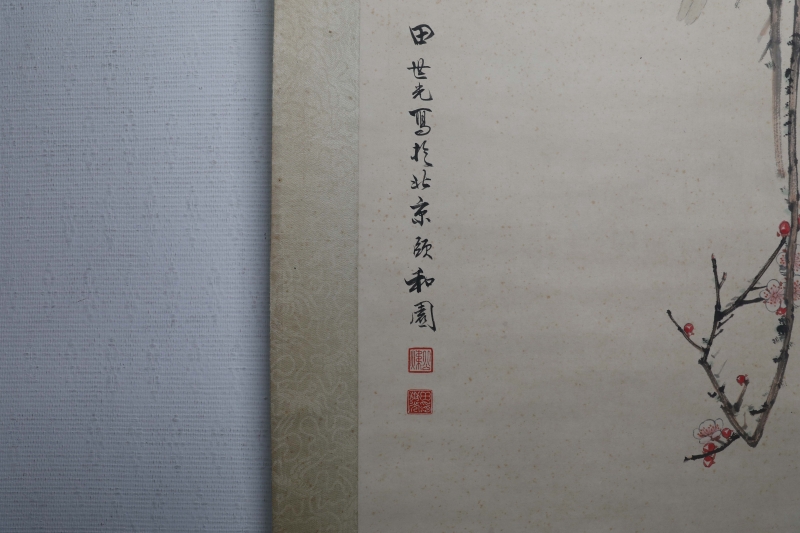 田世光寫於北京頤和園